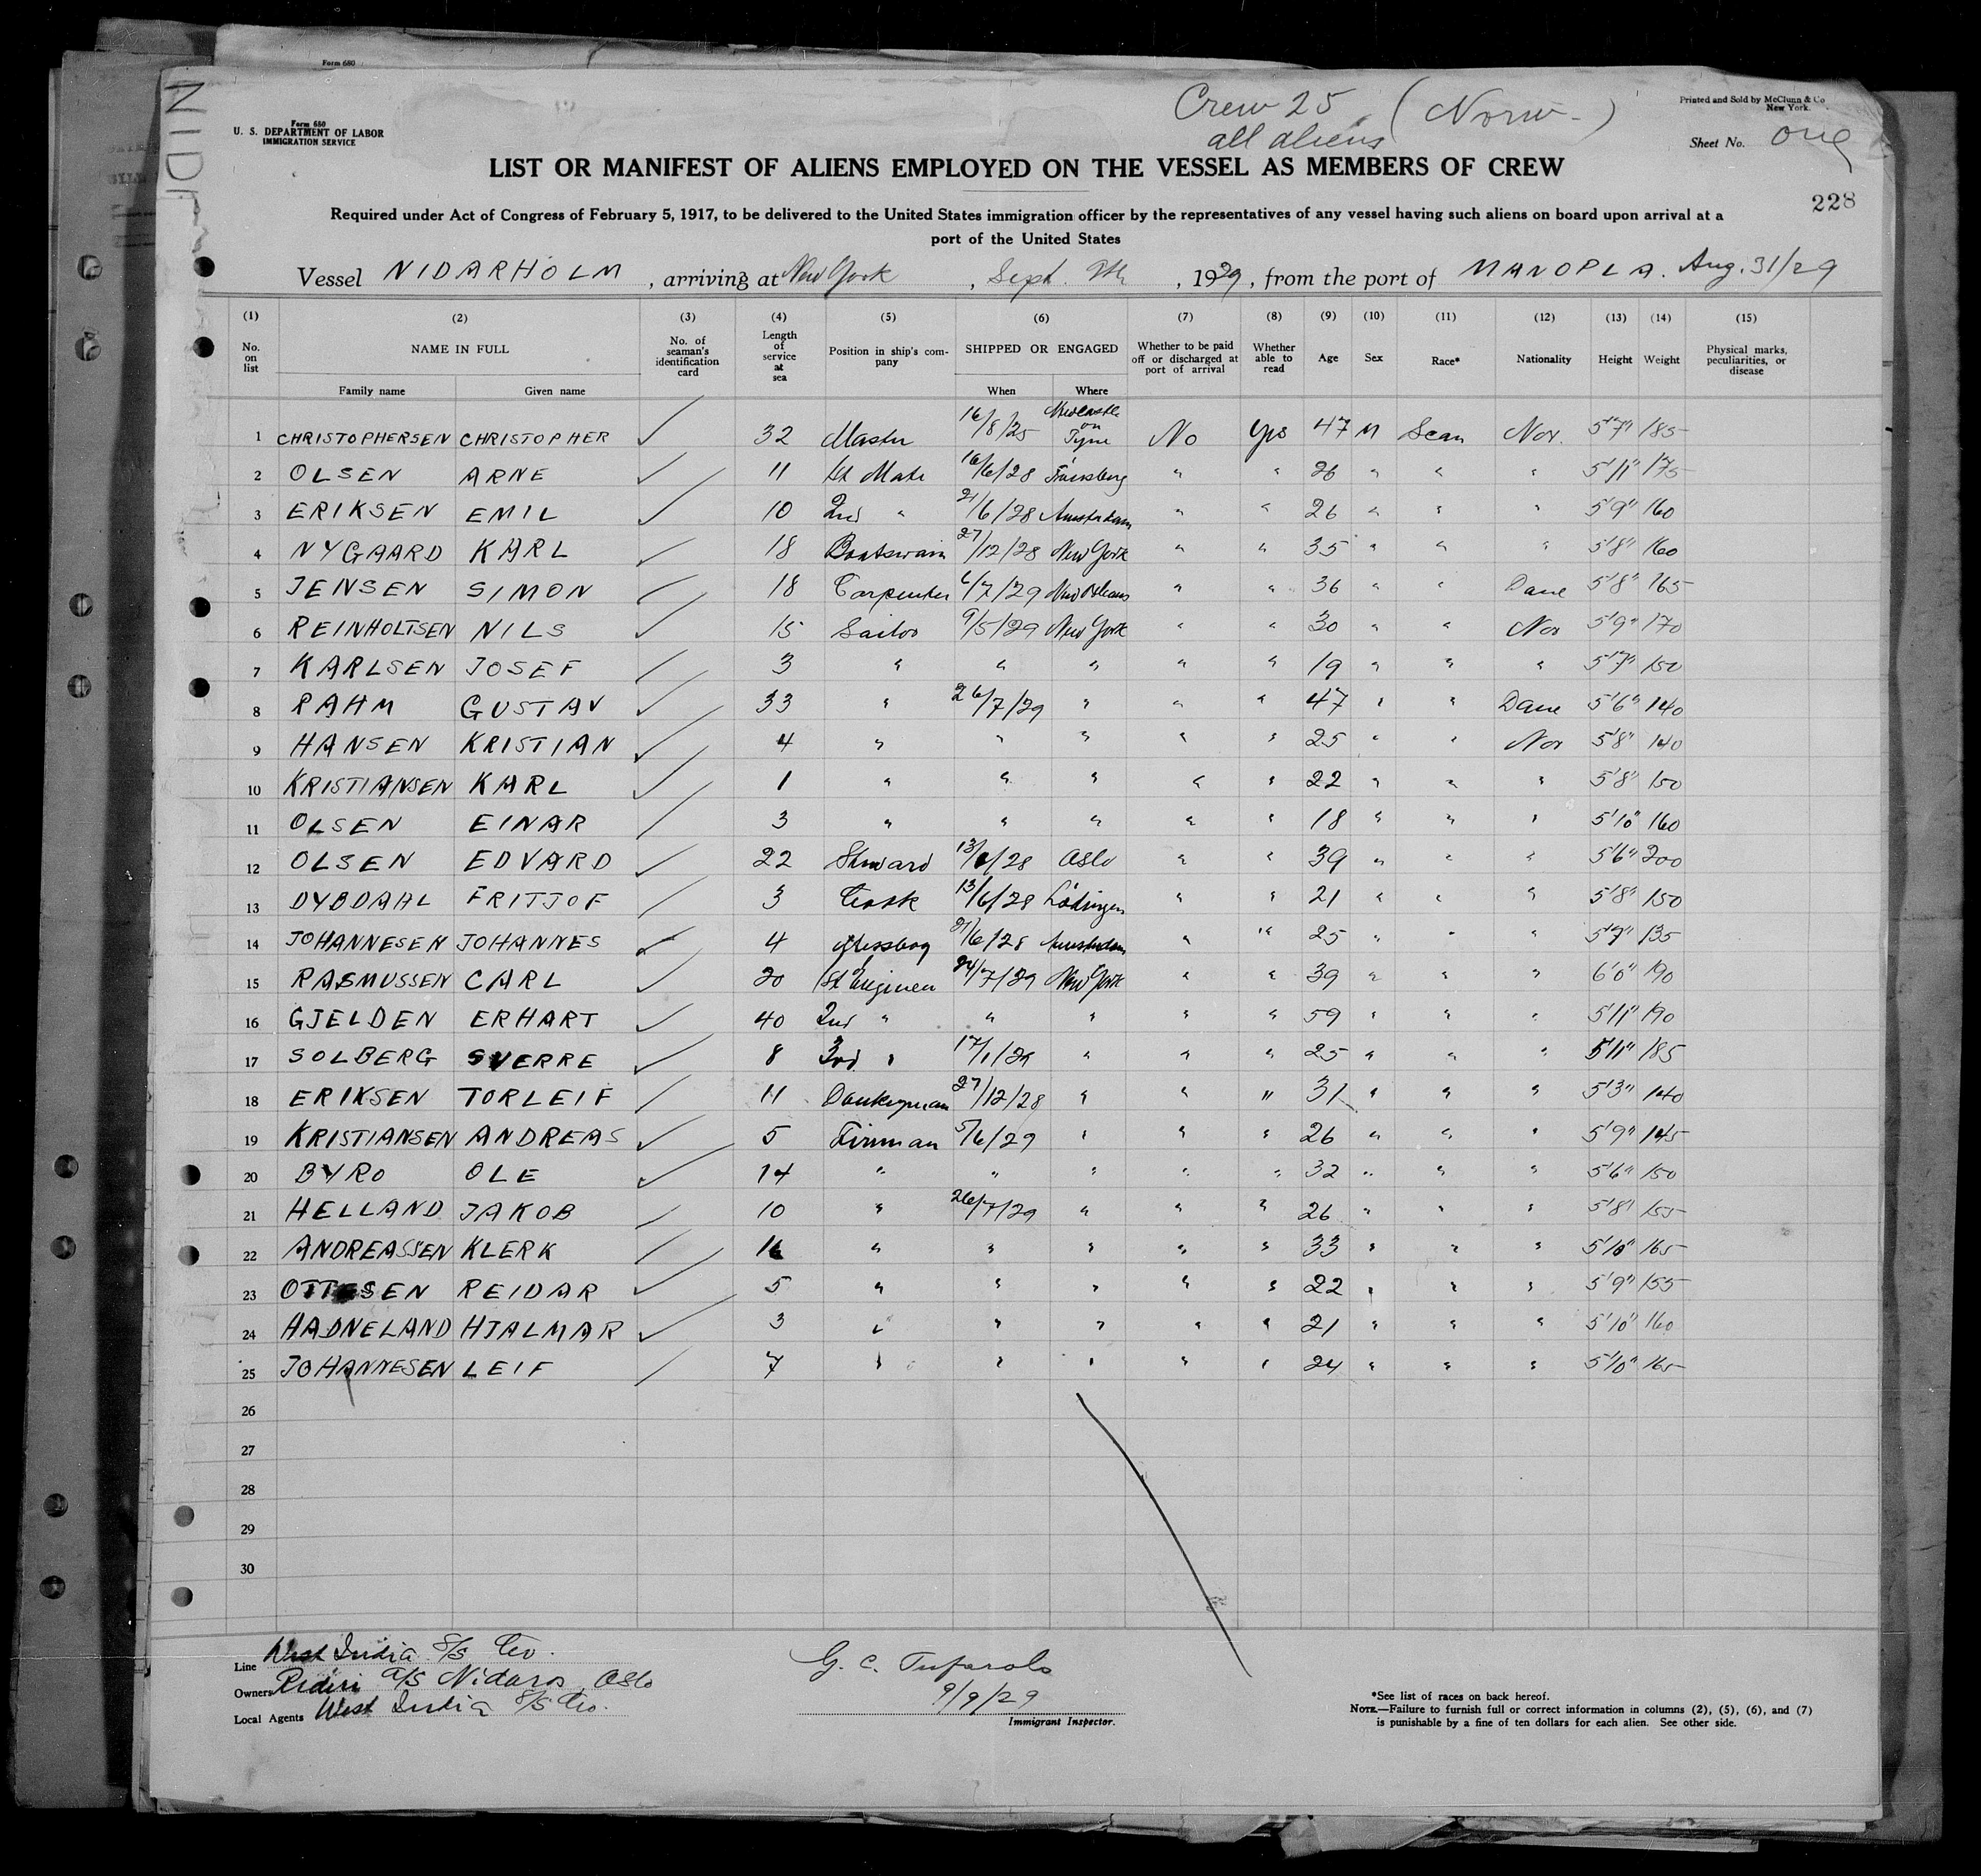 Form 680
NIDA
Crew 25 (Norw-)
all aliens
Printed and Sold by McClunn & Co
New York.
Form 680
U. S. DEPARTMENT OF LABOR
IMMIGRATION SERVICE
Sheet No. one
LIST OR MANIFEST OF ALIENS EMPLOYED ON THE VESSEL AS MEMBERS OF CREW
228
Required under Act of Congress of February 5, 1917, to be delivered to the United States immigration officer by the representatives of any vessel having such aliens on board upon arrival at a
port of the United States
Vessel NIDARHOLM, arriving at New York, Sept. 9th, 1929, from the port of MANOPLA. Aug. 31/29
(1) (2) (3) (4) (5) (6) (7) (8) (9) (10) (11) (12) (13) (14) (15)
No. on list NAME IN FULL No. of seaman's identification card Length of service at sea Position in ship's company SHIPPED OR ENGAGED Whether to be paid off or discharged at port of arrival Whether able to read Age Sex Race* Nationality Height Weight Physical marks, peculiarities, or disease
Family name Given name When Where
1 CHRISTOPHERSEN CHRISTOPHER 32 Master 16/8/25 Newcastle on Tyne No Yes 47 M Scan Nor. 5'7" 185
2 OLSEN ARNE 11 1st Mate 16/6/28 " " 26 " " " 5'11" 175
3 ERIKSEN EMIL 10 2nd " 21/6/28 Amsterdam " " 26 " " " 5'9" 160
4 NYGAARD KARL 18 Boatswain 27/12/28 New York " " 35 " " " 5'8" 160
5 JENSEN SIMON 18 Carpenter 6/7/29 New Orleans " " 36 " " Dane 5'8" 165
6 REINHOLTSEN NILS 15 Sailor 9/5/29 New York " " 30 " " Nor 5'9" 170
7 KARLSEN JOSEF 3 " " " " " 19 " " " 5'7" 150
8 RAHM GUSTAV 33 " 26/7/29 " " " 47 " " Dane 5'6" 140
9 HANSEN KRISTIAN 4 " " " " " 25 " " Nor 5'8" 140
10 KRISTIANSEN KARL 1 " " " " " 22 " " " 5'8" 150
11 OLSEN EINAR 3 " " " " " 18 " " " 5'10" 160
12 OLSEN EDVARD 22 Steward 13/6/28 Oslo " " 39 " " " 5'6" 200
13 DYBDAHL FRITJOF 3 Cook 13/6/28 Lödingen " " 21 " " " 5'8" 150
14 JOHANNESEN JOHANNES 4 Messboy 21/6/28 Amsterdam " " 25 " " " 5'7" 135
15 RASMUSSEN CARL 20 1st Engineer 24/7/29 New York " " 39 " " " 6'0" 190
16 GJELDEN ERHART 40 2nd " " " " " 59 " " " 5'11" 190
17 SOLBERG SVERRE 8 3rd " 17/1/29 " " " 25 " " " 5'11" 185
18 ERIKSEN TORLEIF 11 Donkeyman 27/12/28 " " " 31 " " " 5'3" 140
19 KRISTIANSEN ANDREAS 5 Fireman 5/6/29 " " " 26 " " " 5'9" 145
20 BYRO OLE 14 " " " " " 32 " " " 5'6" 150
21 HELLAND JAKOB 10 " 26/7/29 " " " 26 " " " 5'8" 155
22 ANDREASSEN KLERK 16 " " " " " 33 " " " 5'10" 165
23 OTTESEN REIDAR 5 " " " " " 22 " " " 5'9" 155
24 HADNELAND HJALMAR 3 " " " " " 21 " " " 5'10" 160
25 JOHANNESEN LEIF 7 " " " " " 24 " " " 5'10" 165
26
27
28
29
30
Line West India S/S Co.
Owners Rederi A/S Nidaros, Oslo
Local Agents West India S/S Co.
G. C. Tufarolo
9/9/29
Immigrant Inspector.
*See list of races on back hereof.
NOTE.—Failure to furnish full or correct information in columns (2), (5), (6), and (7)
is punishable by a fine of ten dollars for each alien. See other side.